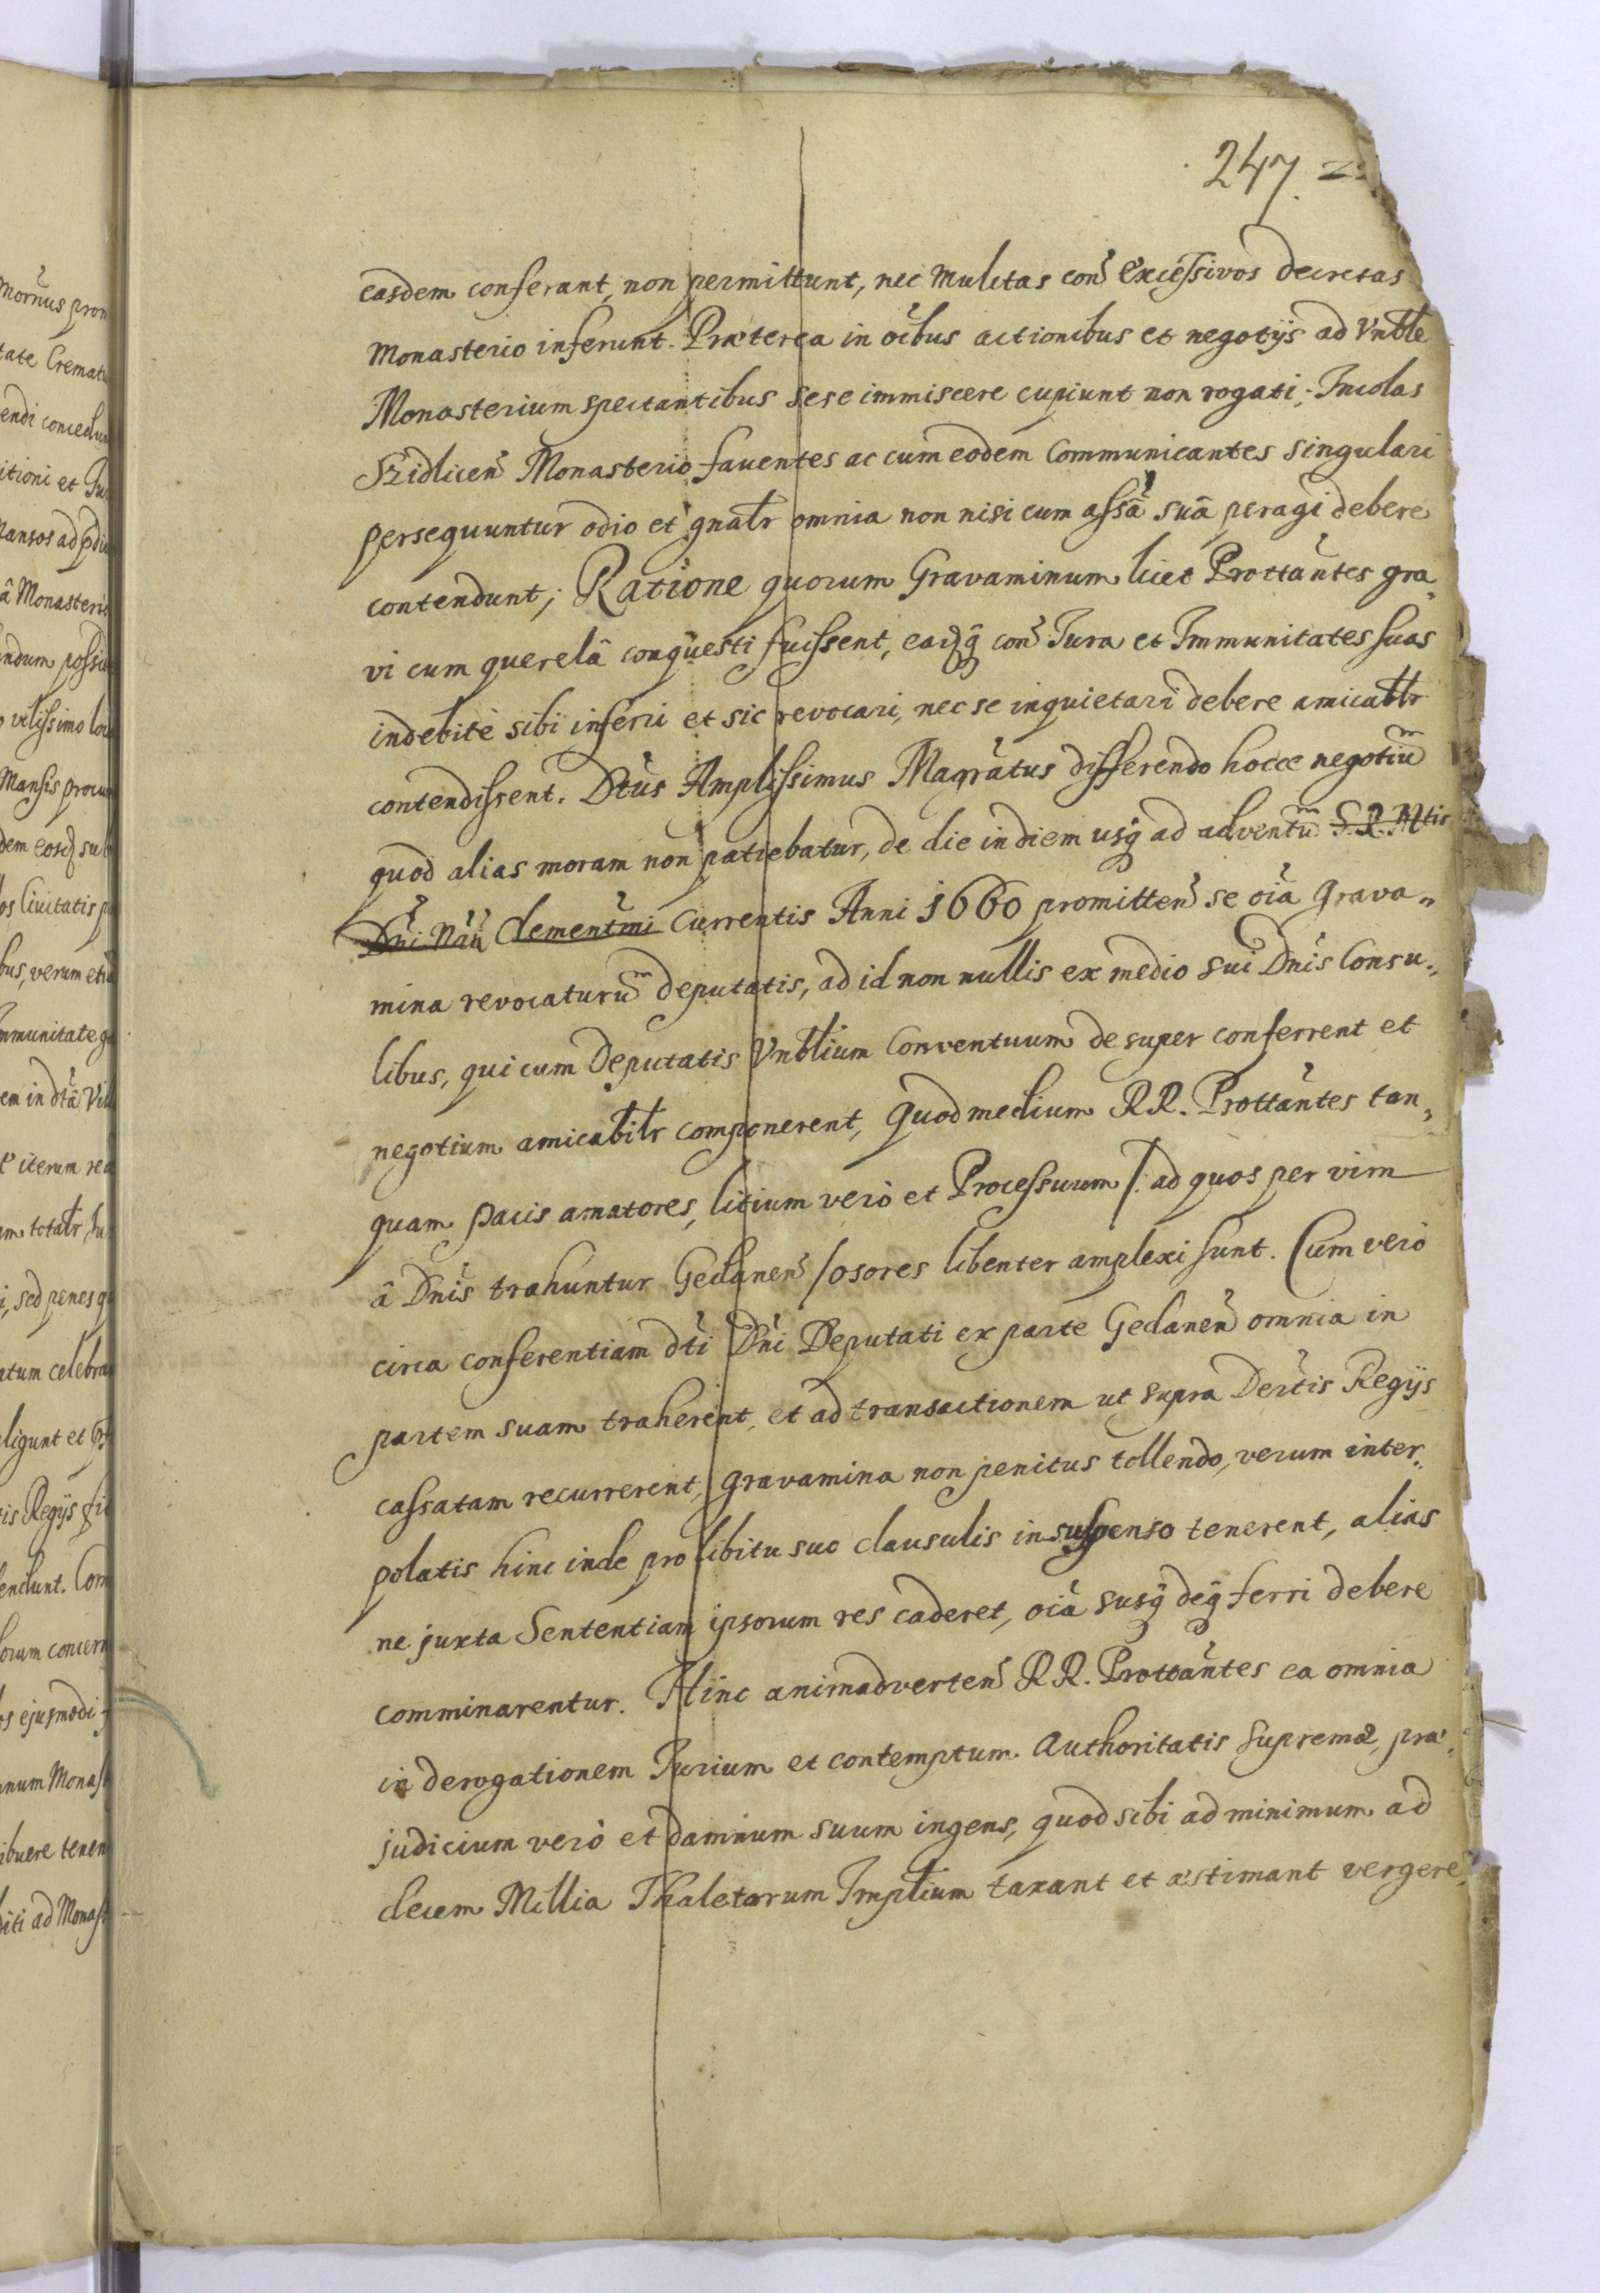 mornus prom
247.
tate Cremat
endi concedun
itioni et Ju
ansos ad pdiu
â Monasteri
ndum possid
vilissimo lo
Mansis procu
dem eosq su
os Civitatis p
bus, verum etia
mmunitate g
em in dta Vil
iterum rea
m totalr, hu
i, sed penes q
atum celebra
ligunt et
is Regijs
endunt. Com
orum concern
os ejusmodi
num Monast
ibuere tenen
diti ad Monast
easdem conferant, non permittunt, nec mulctas con Excessivos decretas
Monasterio inferunt. Præterea in oibus actionibus et negotijs ad Vnble
Monasterium spectantibus sese immiscere cupiunt non rogati; Incolas
Szidlicen Monasterio faventes ac cum eodem Communicantes singulari
persequuntur odio et gnalr omnia non nisi cum assa suâ peragi debere
contendunt; Ratione quorum Gravaminum licet Prottantes gra„
vi cum querelâ conquesti fuissent, eaq con Jura et Immunitates suas
indebitè sibi inferri et sic revocari, nec se inquietari debere amicablr
contendissent. Dtus Amplissimus Magratus differendo hocce negotiu
quod alias moram non patiebatur, de die in diem usq ad adventu S. R. Mtis
Dni Nri Clementmi Currentis Anni 1660 promitten se oia Grava„
mina revocaturu deputatis, ad id non nullis ex medio sui Dnis Consu„
libus, qui cum Deputatis Vnblium Conventuum desuper conferrent et
negotium amicabilr componerent, Quod medium RR. Prottantes tan„
quam pacis amatores, litium verò et Processuum /: ad quos per vim
â Dnis trahuntur Gedanen / osores libenter amplexi sunt. Cum verò
circa conferentiam dti Dni Deputati ex parte Gedanen omnia in
partem suam traherent, et ad transactionem ut supra Dertis Regijs
cassatam recurrerent, gravamina non penitus tollendo, verum inter„
polatis hinc inde pro libitu suo clausulis in suspenso tenerent, alias
ne juxta Sententiam ipsorum res caderet, oia susq deq ferri debere
comminarentur. Hinc animadverten RR. Prottantes ea omnia
in derogationem Jurium et contemptum Authoritatis Supremæ, præ„
judicium verò et damnum suum ingens, quod sibi ad minimum ad
decem Millia Thalerorum Implium taxant et æstimant vergere,